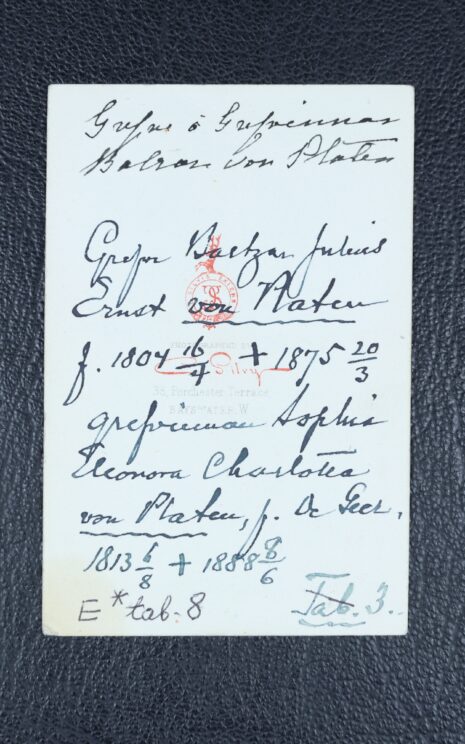 Grefve o Grefvinnan
Baltzar von Platen
Grefve Baltzar Julius
Ernst von Platen
f. 1804 16/4 + 1875 20/3
PHOTOGRAPHED BY
C. Silvy
38, Porchester Terrace
BAYSWATER. W
grefvinnan Sophia
Eleonora Charlotta
von Platen, f. De Geer.
1813 6/8 + 1888 8/6
E* tab. 8
Tab. 3.